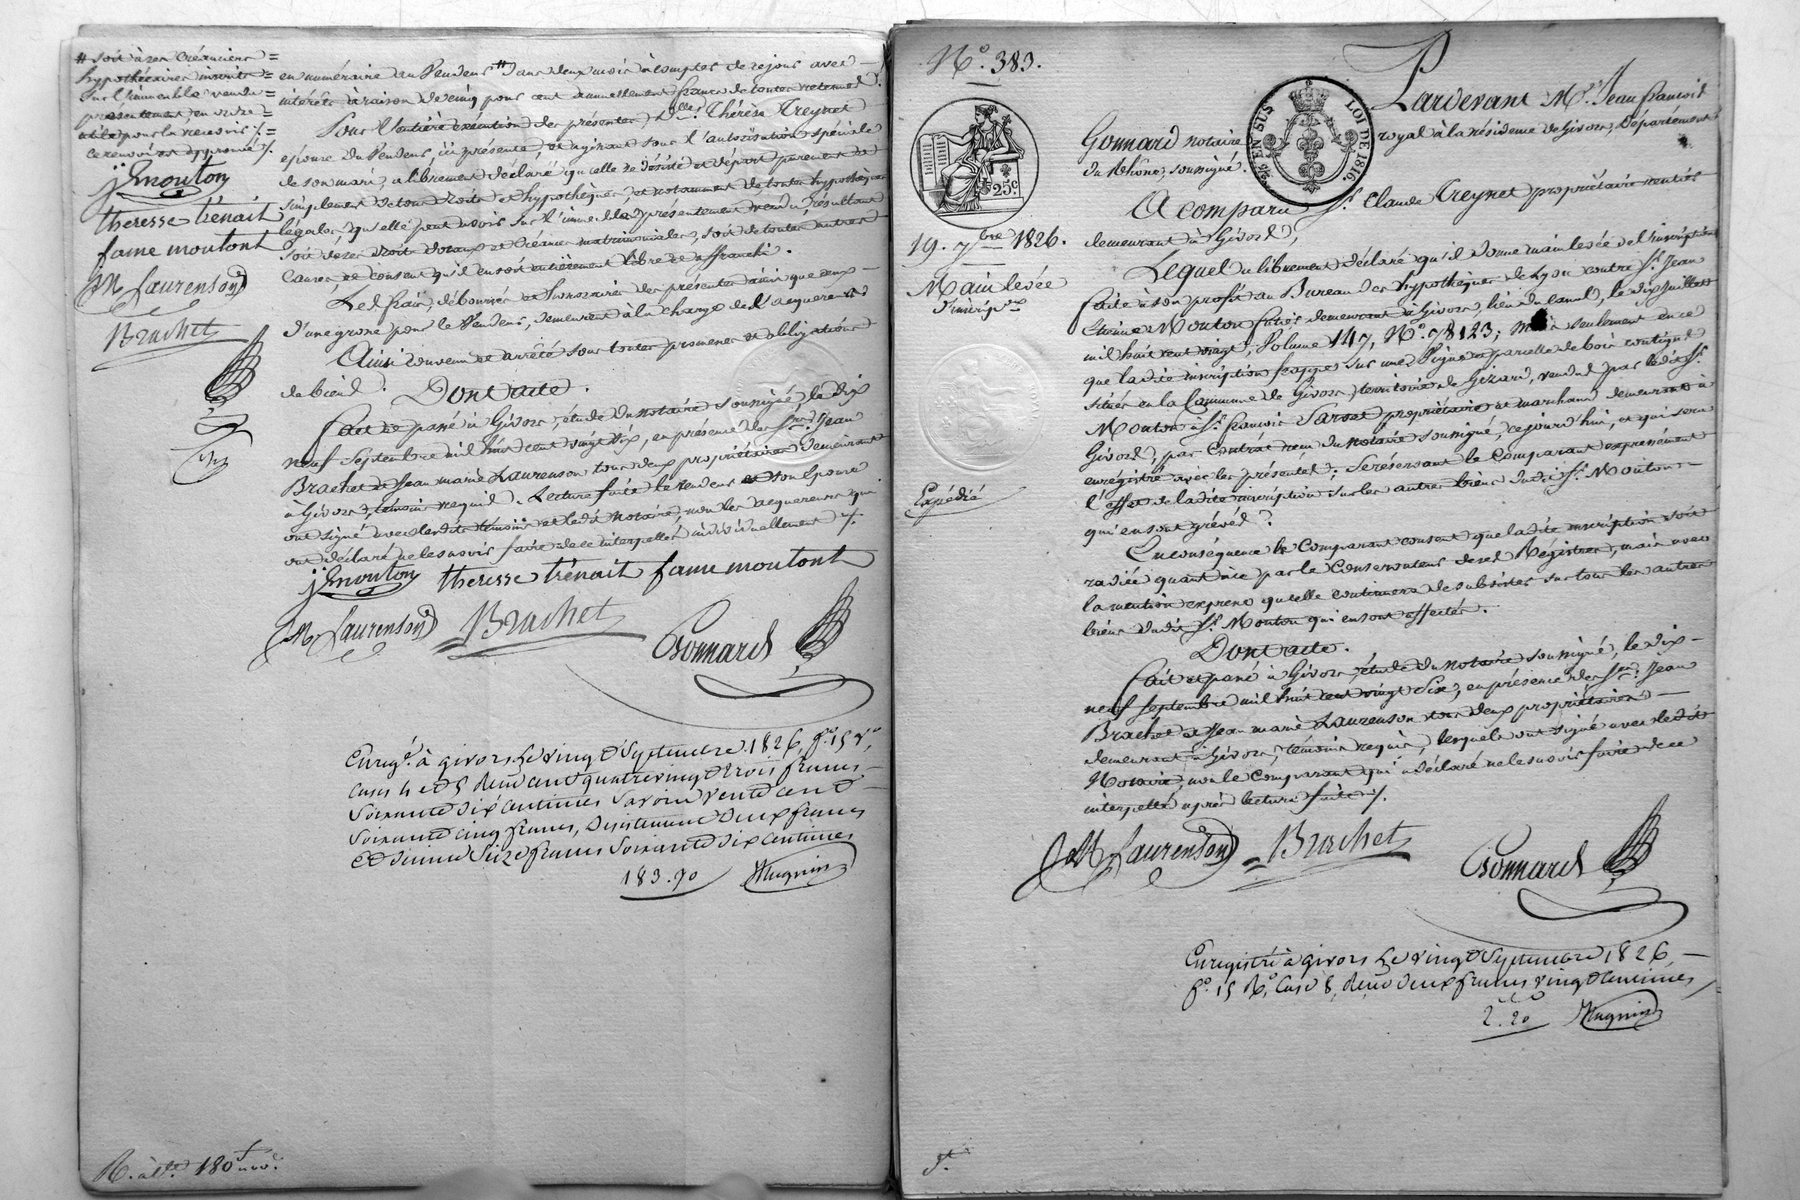 # soit à ses créanciers =
hypothécaires inscrits =
sur l'immeuble vendu =
présentement, en vertu =
utile pour la recevoir /. =
ce renvoi est approuvé /.
jEmouton
theresse trénait
fame moutont
JM Laurenson
Brachet
en numéraire au Vendeur # dans deux mois à compter de ce jour avec
intérêts à raison de cinq pour cent annuellement francs de toutes retenues.
Pour l'entière exécution des présentes, D.lle Thérèse Treynet
épouse du Vendeur, ici présente, et agissant sous l'autorisation spéciale
de son mari, a librement déclaré qu'elle se désiste et départ purement et
simplement de tous droits et hypothèques, et notamment de toutes hypothèques
légales, qu'elle peut avoir sur l'immeuble présentement vendu résultant
soit de ses droits dotaux et créances matrimoniales, soit de toutes autres
causes, et consent qu'il en soit entièrement libre et affranchi.
Les frais, déboursés et honoraires des présentes ainsi que ceux
d'une grosse pour le Vendeur, demeurent à la charge de l'acquereur.
Ainsi convenu et arrêté sous toutes promesses et obligations
de biens. Dont acte.
Fait et passé à Givors, étude du notaire soussigné, le dix
neuf Septembre mil huit cent vingt six, en présence des S.rs Jean
Brachet et Jean marie Laurenson tous deux propriétaires demeurant
à Givors, témoins requis. Lecture faite le vendeur et son Epouse
ont signé avec lesdits témoins et ledit notaire, non les acquereurs qui
ont déclaré ne le savoir faire de ce interpellés individuellement /.
jEmouton theresse trénait fame moutont
JM Laurenson Brachet Gonnard
Enreg.é à givors le vingt Septembre 1826, f.o 15 v.o,
cases 4 et 5, reçu cent quatre vingt trois francs
soixante dix centimes savoir vente cent
soixante cinq francs, désistement deux francs
et dixième seize francs soixante dix centimes
183.70 Mugnin
N.o 383.
25c
EN SUS
LOI DE 1816
19. 7.bre 1826.
Mainlevée
d'inscrip.on
Expédié
Pardevant M.e Jean françois
Gonnard notaire royal à la résidence de Givors, Département
du Rhône, soussigné.
A comparu S.r Claude Treynet propriétaire rentier
demeurant à Givors,
Lequel a librement déclaré qu'il donne mainlevée de l'inscription
faite à son profit au Bureau des hypothèques de Lyon contre S.r Jean
Etienne Mouton demeurant à Givors, lieu du canal, le dix juillet
mil huit cent vingt, Volume 147, N.o 78123; mais seulement en ce
que ladite inscription frappe sur une Vigne et parcelle de bois contigue
situés en la Commune de Givors, territoire de Gizard, vendus par ledit S.r
Mouton à S.r françois propriétaire et marchand demeurant à
Givors, par Contrat reçu du notaire soussigné, cejourd'hui, et qui sera
enregistré avec les présentes; se réservant le Comparant expressément
l'effet de ladite inscription sur les autres biens dudit S.r Mouton
qui en sont grévés.
En conséquence le Comparant consent que ladite inscription soit
radiée quant à ce par le Conservateur de ses Registres, mais avec
la mention expresse qu'elle continuera de subsister sur tous les autres
biens dudit S.r Mouton qui en sont affectés.
Dont acte.
Fait et passé à Givors, étude du notaire soussigné, le dix
neuf septembre mil huit cent vingt Six, en présence des S.rs Jean
Brachet et Jean marie Laurenson tous deux propriétaires
demeurant à Givors, témoins requis, lesquels ont signé avec ledit
Notaire, non le Comparant qui a déclaré ne le savoir faire de ce
interpellé après lecture faite /.
JM Laurenson Brachet Gonnard
Enregistré à givors le vingt Septembre 1826,
f.o 15 R.o, Case 8, reçu deux francs vingt centimes,
2.20 Mugnin